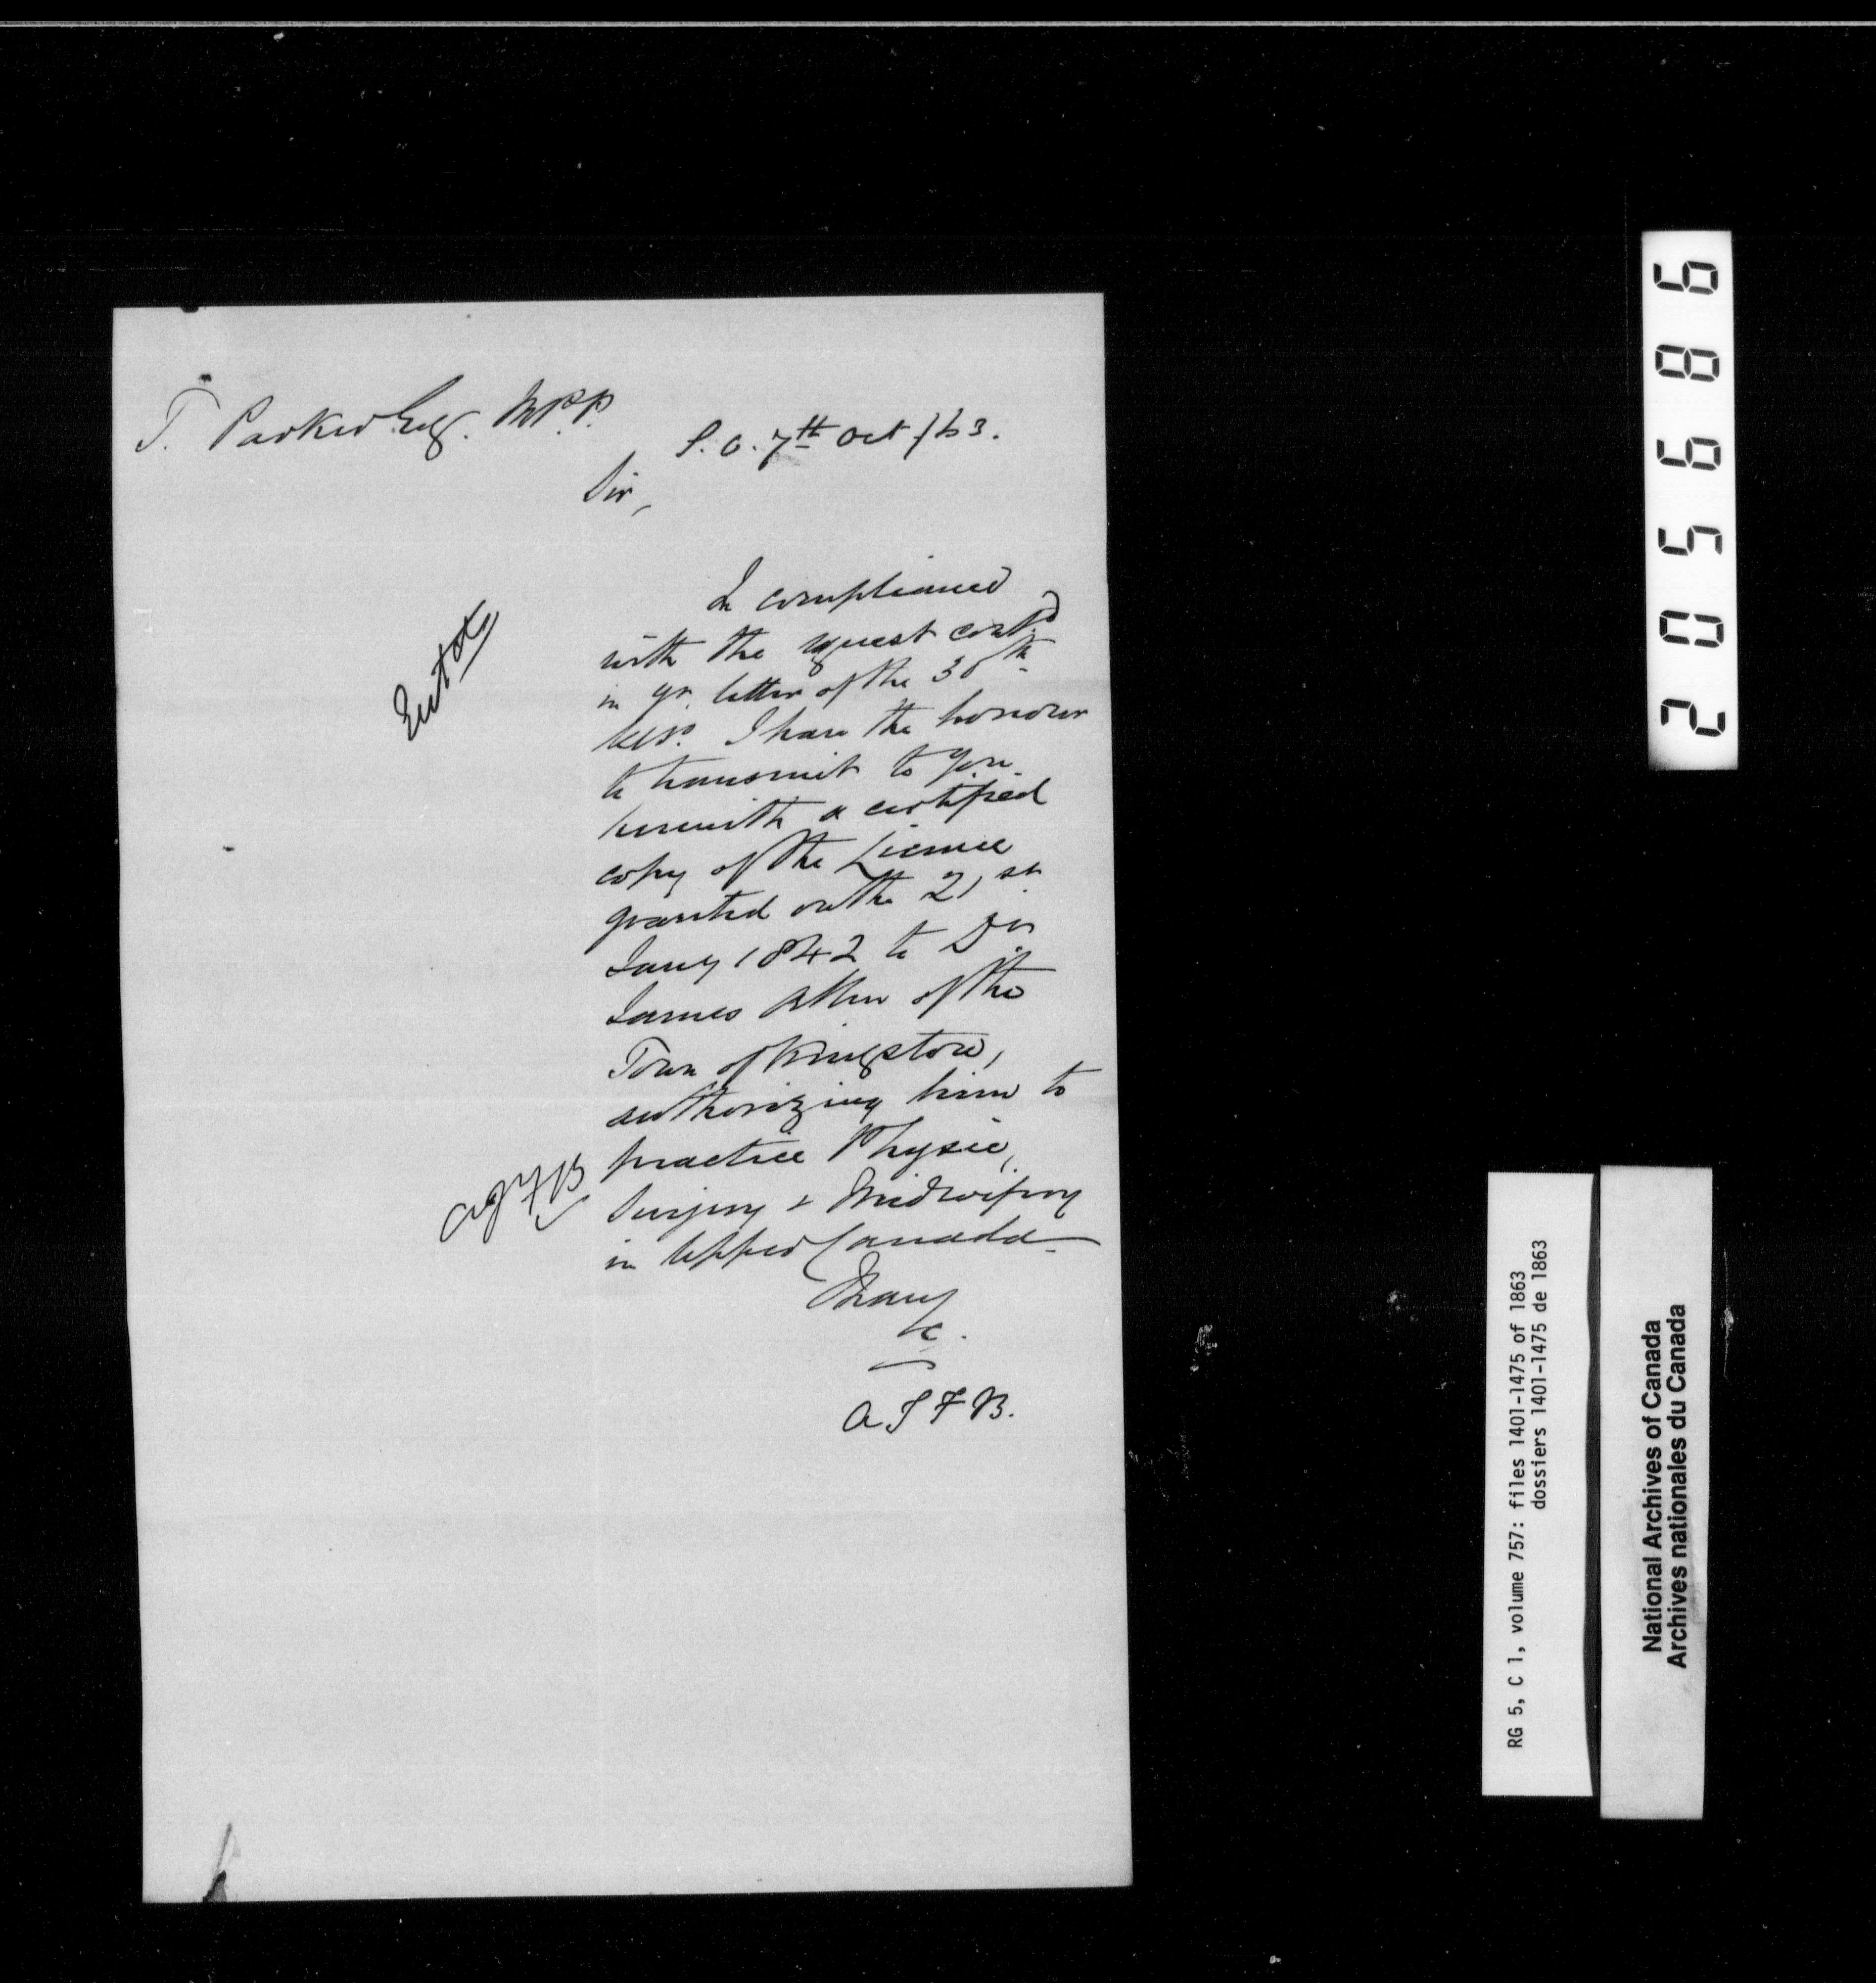 T. Parker Esq. M.P.P.
S.O. 7th Oct /63.
Sir,
In compliance
with the request cont'd
in yr. letter of the 30th
I have the honour
to transmit to you
herewith a certified
copy of the Licence
granted on the 21st
Jany 1842 to Dr
James of the
Town of Kingston,
authorizing him to
practice Physic,
Surgery & Midwifery
in Upper Canada
I have
&c.
A J F B.
Ent'd
205686
RG 5, C 1, volume 757: files 1401-1475 of 1863
dossiers 1401-1475 de 1863
National Archives of Canada
Archives nationales du Canada